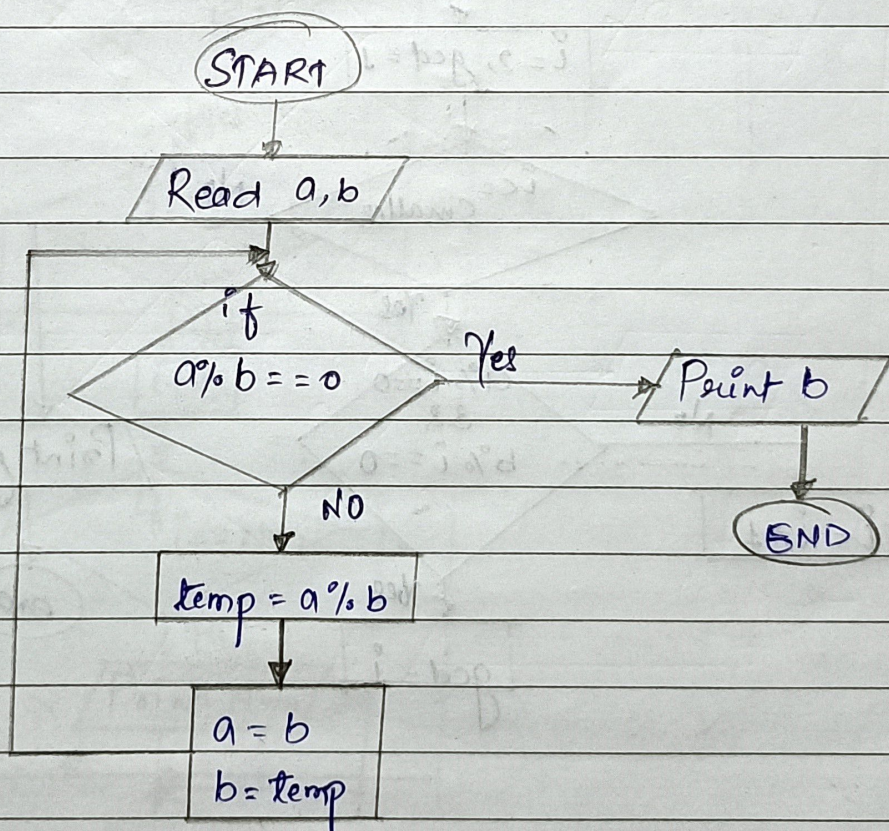 START
Read a, b
if
a% b = = 0
Yes
Print b
NO
END
temp = a % b
a = b
b = temp